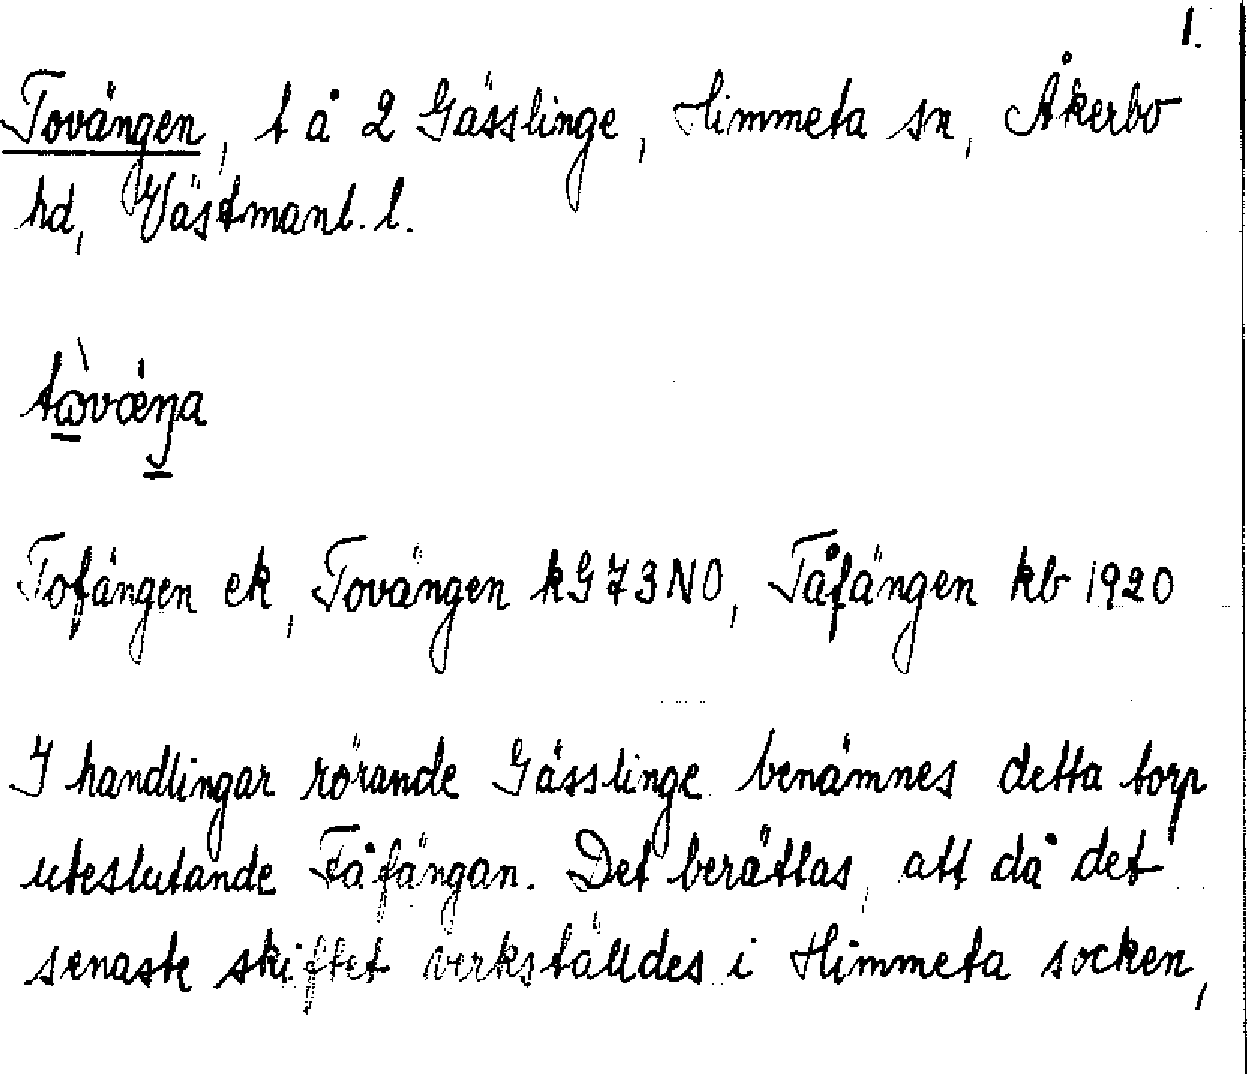 1.
Tovängen, t å 2 Gässlinge, Himmeta sn, Åkerbo
hd, Västmanl. l.
Tofängen ek, Tovängen kG73NO, Tåfängen kb 1920
I handlingar rörande Gässlinge benämnes detta torp
uteslutande Fåfängan. Det berättas, att då det
senaste skiftet verkställdes i Himmeta socken,